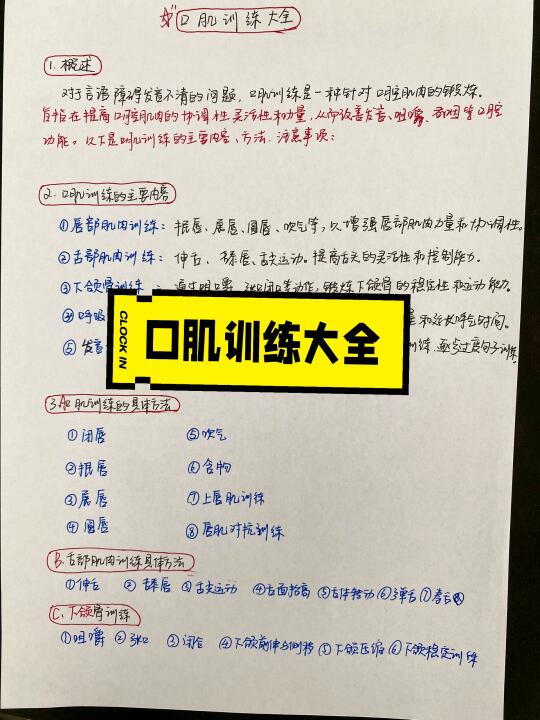 口肌训练大全
1. 概述
对于言语障碍发音不清的问题，口肌训练是一种针对口腔肌肉的锻炼。
旨在提高口腔肌肉的协调性灵活性和力量，从而改善发音、咀嚼、吞咽等口腔
功能。以下是口肌训练的主要内容、方法、注意事项：
2. 口肌训练的主要内容
①唇部肌肉训练：抿唇、展唇、圆唇、吹气等，以增强唇部肌肉力量和协调性。
②舌部肌肉训练：伸舌、舔唇、舌尖运动。提高舌头的灵活性和控制能力。
③下颌骨训练：通过咀嚼、张口闭口等动作，锻炼下颌骨的稳定性和运动能力。
④呼吸 量和延长呼气时间。
⑤发音 训练，逐步过渡句子训练。
CLOCK IN
口肌训练大全
3.A口肌训练的具体方法
①闭唇 ⑤吹气
②抿唇 ⑥含物
③展唇 ⑦上唇肌训练
④圆唇 ⑧唇肌对抗训练
B.舌部肌肉训练具体方法
①伸舌 ②舔唇 ③舌尖运动 ④舌面抬高 ⑤舌体转动 ⑥弹舌 ⑦卷舌
C.下颌骨训练
①咀嚼 ②张口 ③闭合 ④下颌前伸与侧移 ⑤下颌压缩 ⑥下颌稳定训练